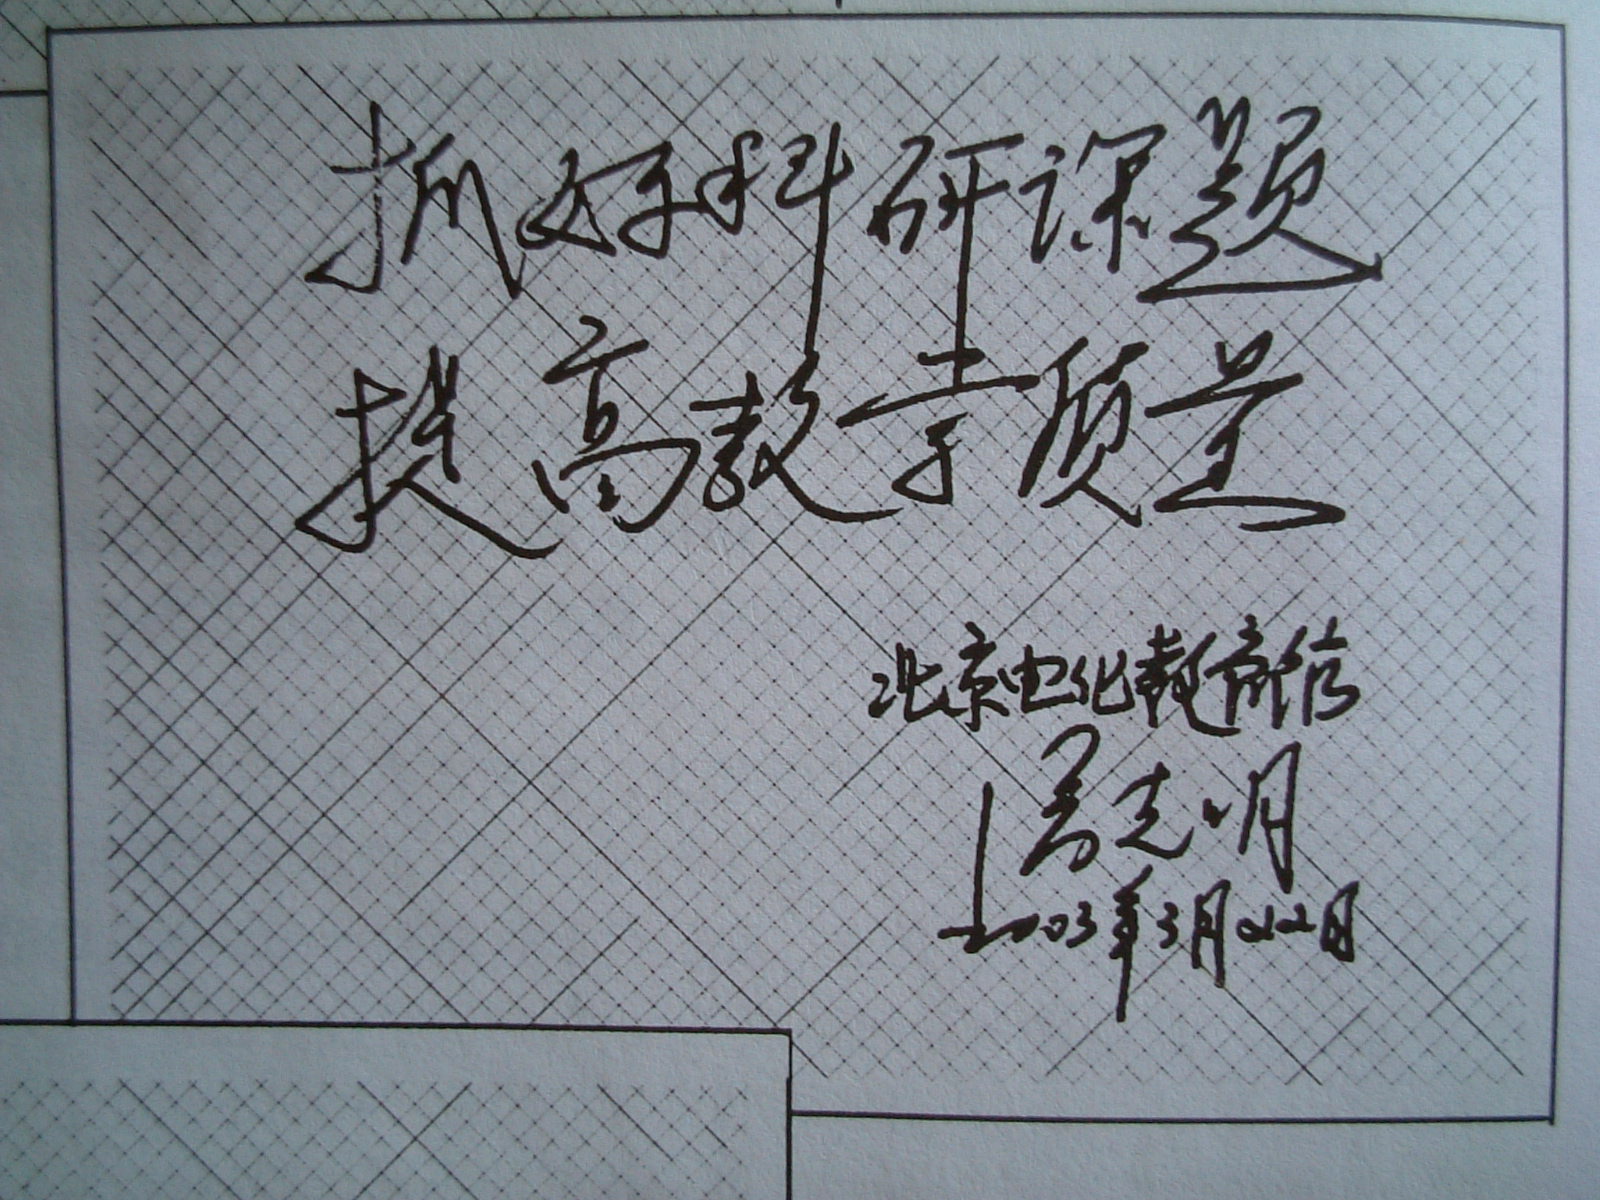 抓好科研课题
提高教学质量
北京电化教育馆
志明
2003年3月22日